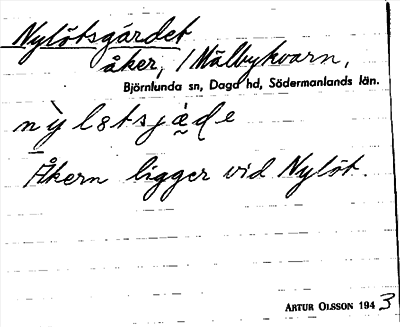 Nylötsgärdet
åker, / Mälbykvarn,
Björnlunda sn, Daga hd, Södermanlands län.
Åkern ligger vid Nylöt.
ARTUR OLSSON 1943